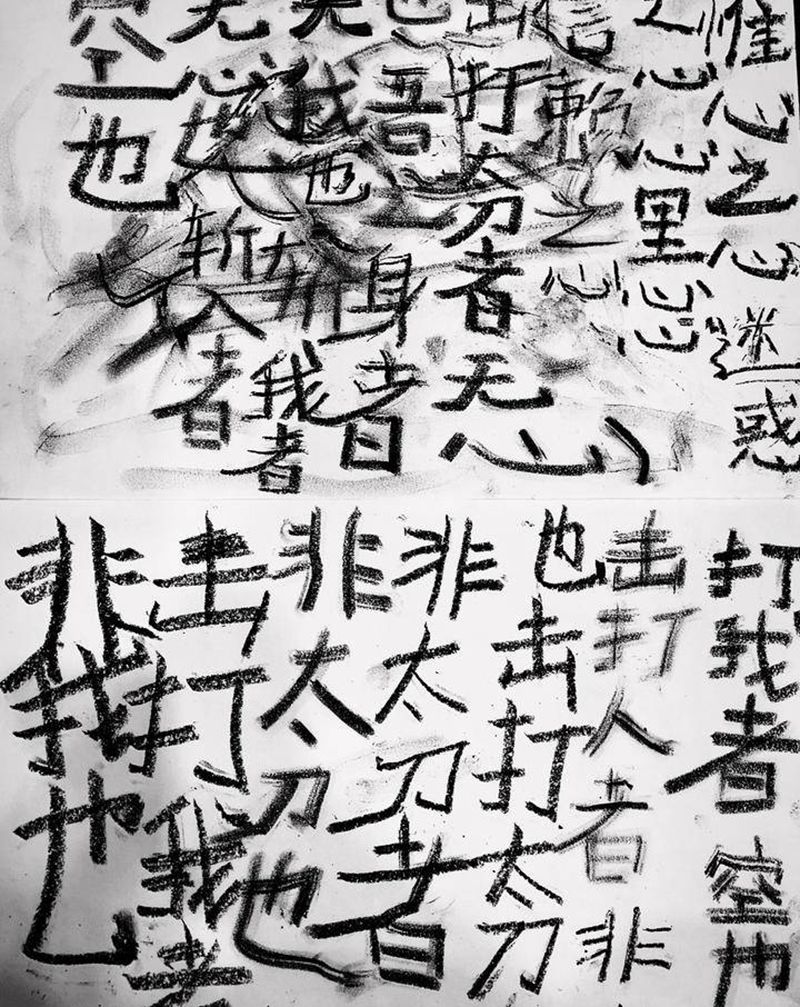 惟心之心迷惑
之心心里心心
信赖之心
击打太刀者无心
也吾身者
无我也我者
无心也斩人者
空也
打我者空也
击打人者非
也击打太刀
非太刀者
非太刀也
击打我者
非我也